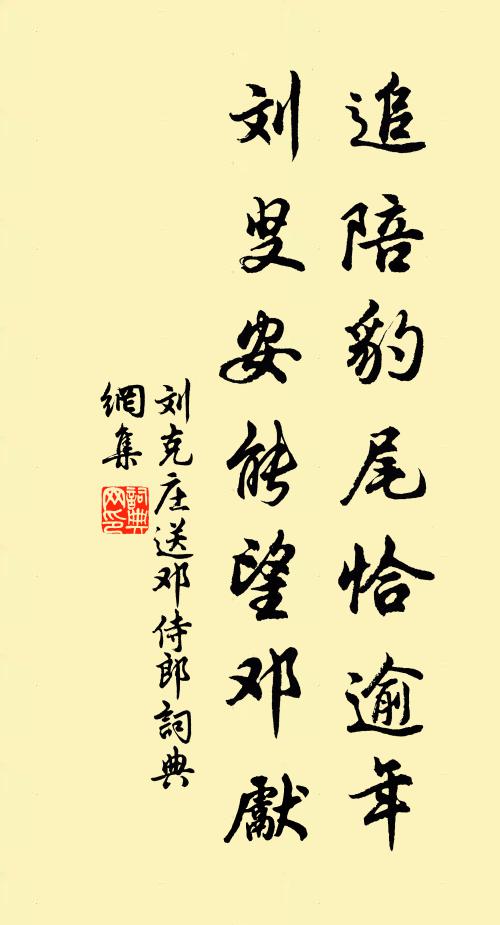 追陪豹尾恰逾年
刘叟安能望邓獻
刘克庄送邓侍郎詞典
網集
詞典
网印